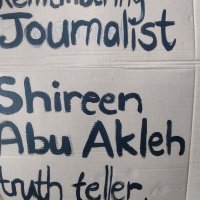 Remembering
Journalist
Shireen
Abu Akleh
truth teller.